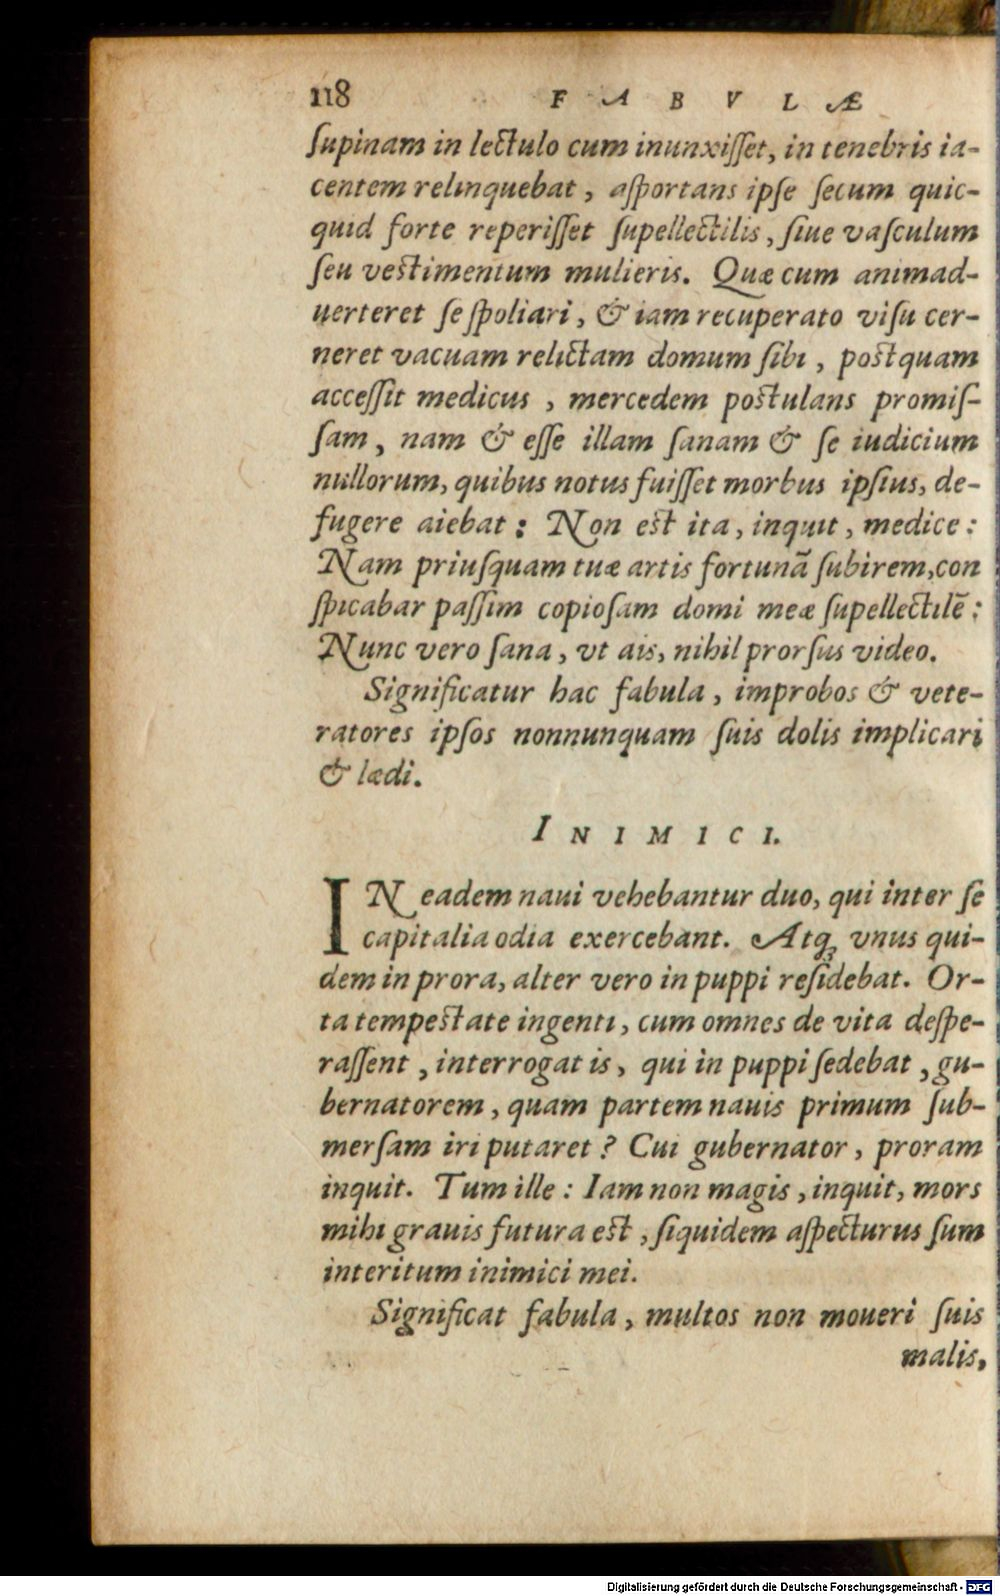 118 F A B V L Æ
ſupinam in lectulo cum inunxiſſet, in tenebris ia-
centem relinquebat, aſportans ipſe ſecum quic-
quid forte reperiſſet ſupellectilis, ſiue vaſculum
ſeu veſtimentum mulieris. Quæ cum animad-
uerteret ſe ſpoliari, & iam recuperato viſu cer-
neret vacuam relictam domum ſibi, poſtquam
acceſſit medicus, mercedem poſtulans promiſ-
ſam, nam & eſſe illam ſanam & ſe iudicium
nullorum, quibus notus fuiſſet morbus ipſius, de-
fugere aiebat: Non eſt ita, inquit, medice:
Nam priuſquam tuæ artis fortunã ſubirem, con
ſpicabar paſſim copioſam domi meæ ſupellectilẽ:
Nunc vero ſana, vt ais, nihil prorſus video.
Significatur hac fabula, improbos & vete-
ratores ipſos nonnunquam ſuis dolis implicari
& lædi.
I N I M I C I.
IN eadem naui vehebantur duo, qui inter ſe
capitalia odia exercebant. Atq; vnus qui-
dem in prora, alter vero in puppi reſidebat. Or-
ta tempeſtate ingenti, cum omnes de vita deſpe-
raſſent, interrogat is, qui in puppi ſedebat, gu-
bernatorem, quam partem nauis primum ſub-
merſam iri putaret? Cui gubernator, proram
inquit. Tum ille: Iam non magis, inquit, mors
mihi grauis futura eſt, ſiquidem aſpecturus ſum
interitum inimici mei.
Significat fabula, multos non moueri ſuis
malis,
Digitalisierung gefördert durch die Deutsche Forschungsgemeinschaft - DFG